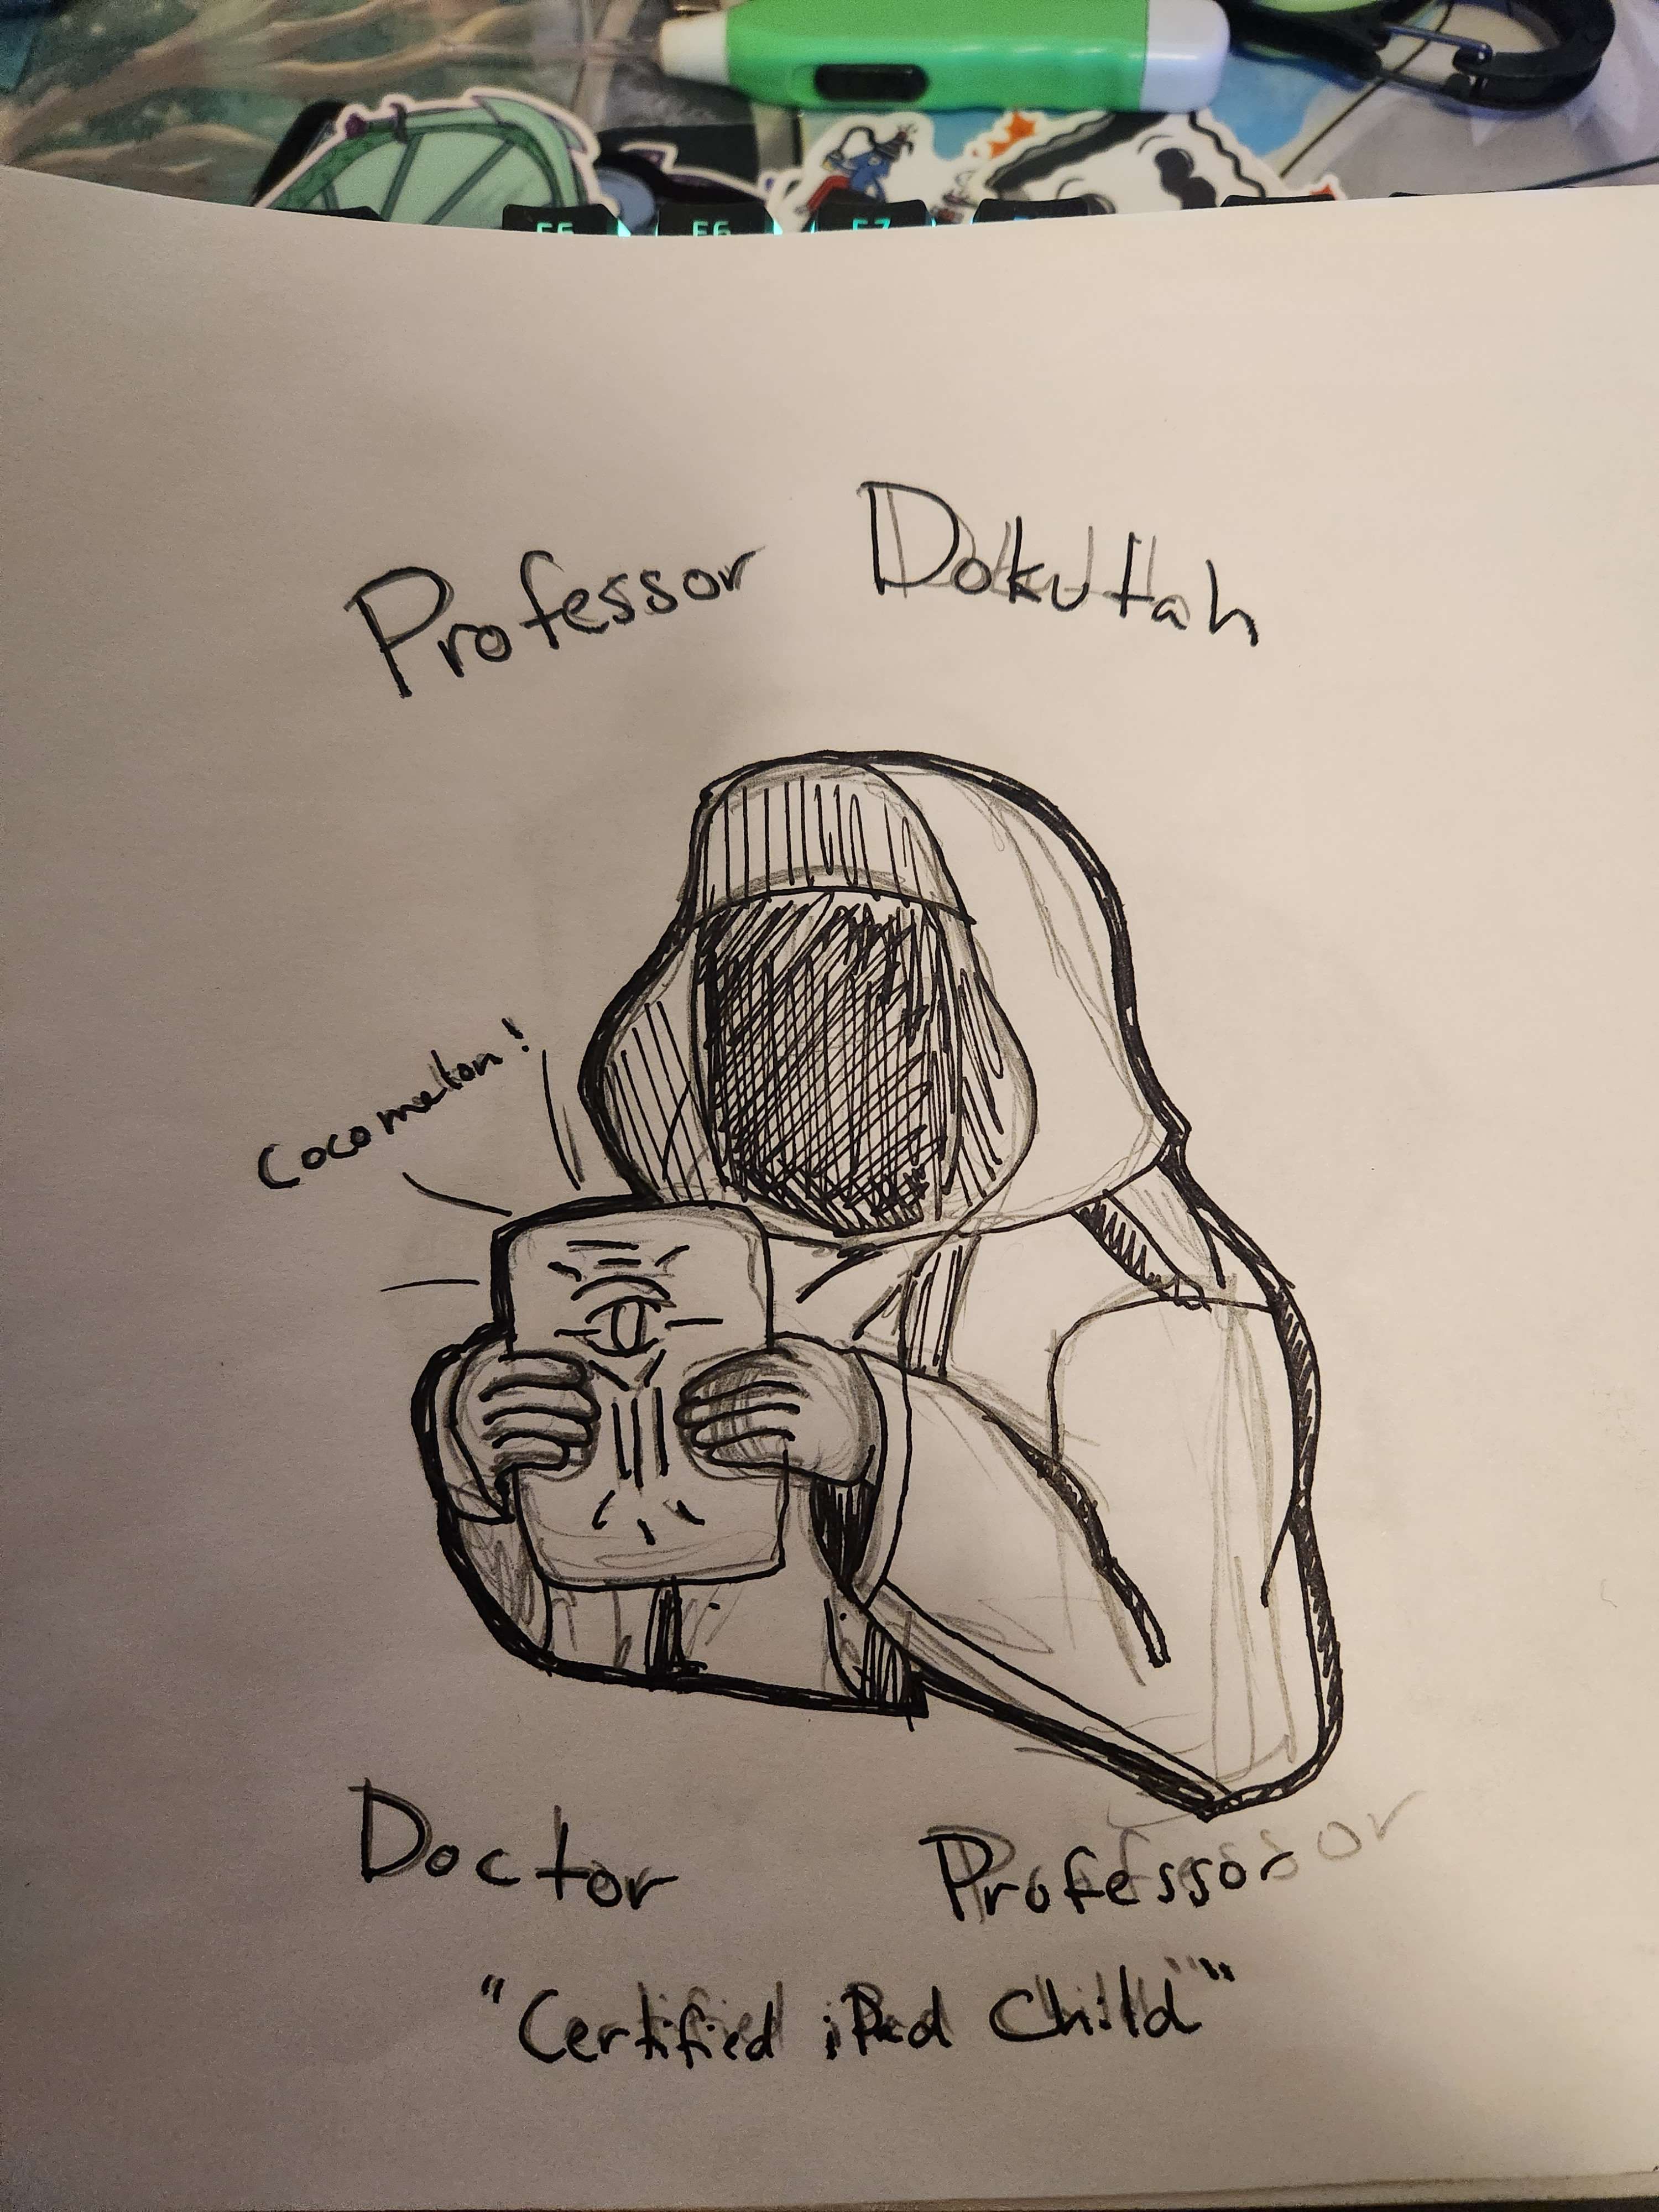 F5 F6 F7
Professor Dokutah
Cocomelon!
Doctor Professor
"Certified iPad Child"